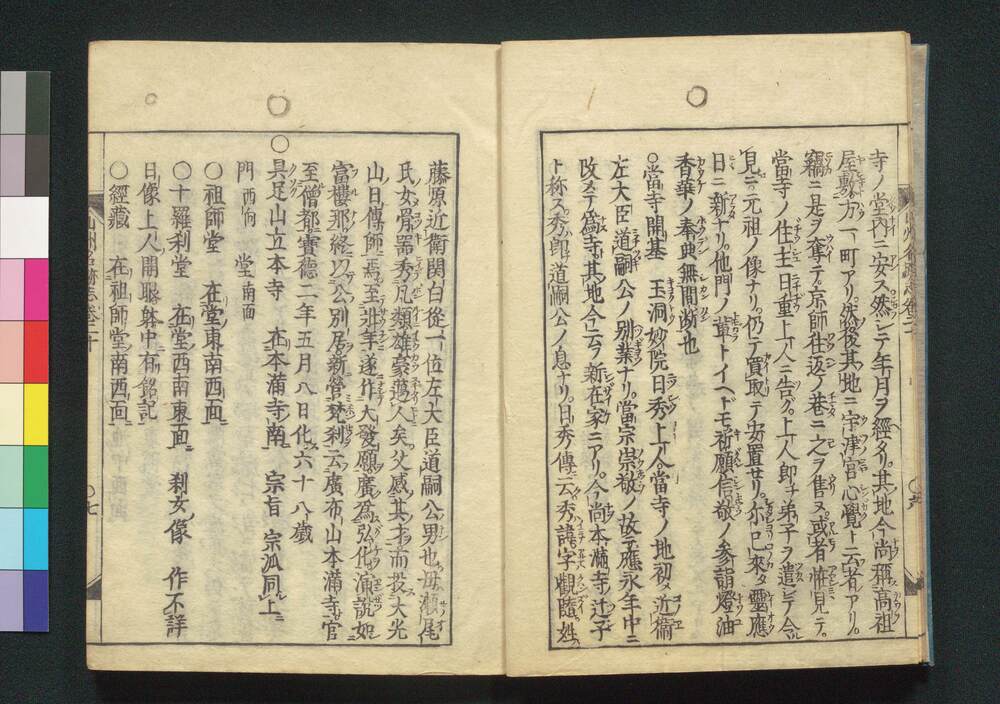 寺ノ堂内ニ安ス然シテ年月ヲ經タリ其地今尚稱高祖
屋敷方一町アリ然後其地ニ宇津宮心覺ト云者アリ
竊ニ是ヲ奪テ京師往返ノ巷ニ之ヲ售ス或者恠見テ
當寺ノ住主日重上人ニ告グ上人即チ弟子ヲ遣シテ令
見ニ元祖ノ像ナリ仍テ買取テ安置セリ尓已來タ靈應
日ニ新ナリ他門ノ輩トイヘドモ祈願信敬ノ参詣燈油
香華ノ奉典無間断也
○當寺開基 玉洞妙院日秀上人當寺ノ地初メ近衞
左大臣道嗣公ノ別業ナリ當宗崇敬ノ故ニ應永年中ニ
改テ爲寺其地今云フ新在家ニアリ今尚本滿寺辻子
ト称ス秀即道嗣公ノ息ナリ日秀傳ニ云秀諱字觀隨姓
藤原近衞関白從一位左大臣道嗣公男也母瀬尾
氏女骨噐秀凡類雄豪邁人矣父感其才而投大光
山日傳師焉至壯年遂作大發願廣爲弘化涌説如
富樓那終以公別居新營梵刹云廣布山本滿寺官
至僧都寳德二年五月八日化六十八歳
○具足山立本寺 在本滿寺南 宗旨 宗派同上
門西向 堂南面
○祖師堂 在堂東南西面
○十羅刹堂 在堂西南東面 刹女像 作不詳
日像上人開眼躰中有銘記
○經藏 在祖師堂南西面